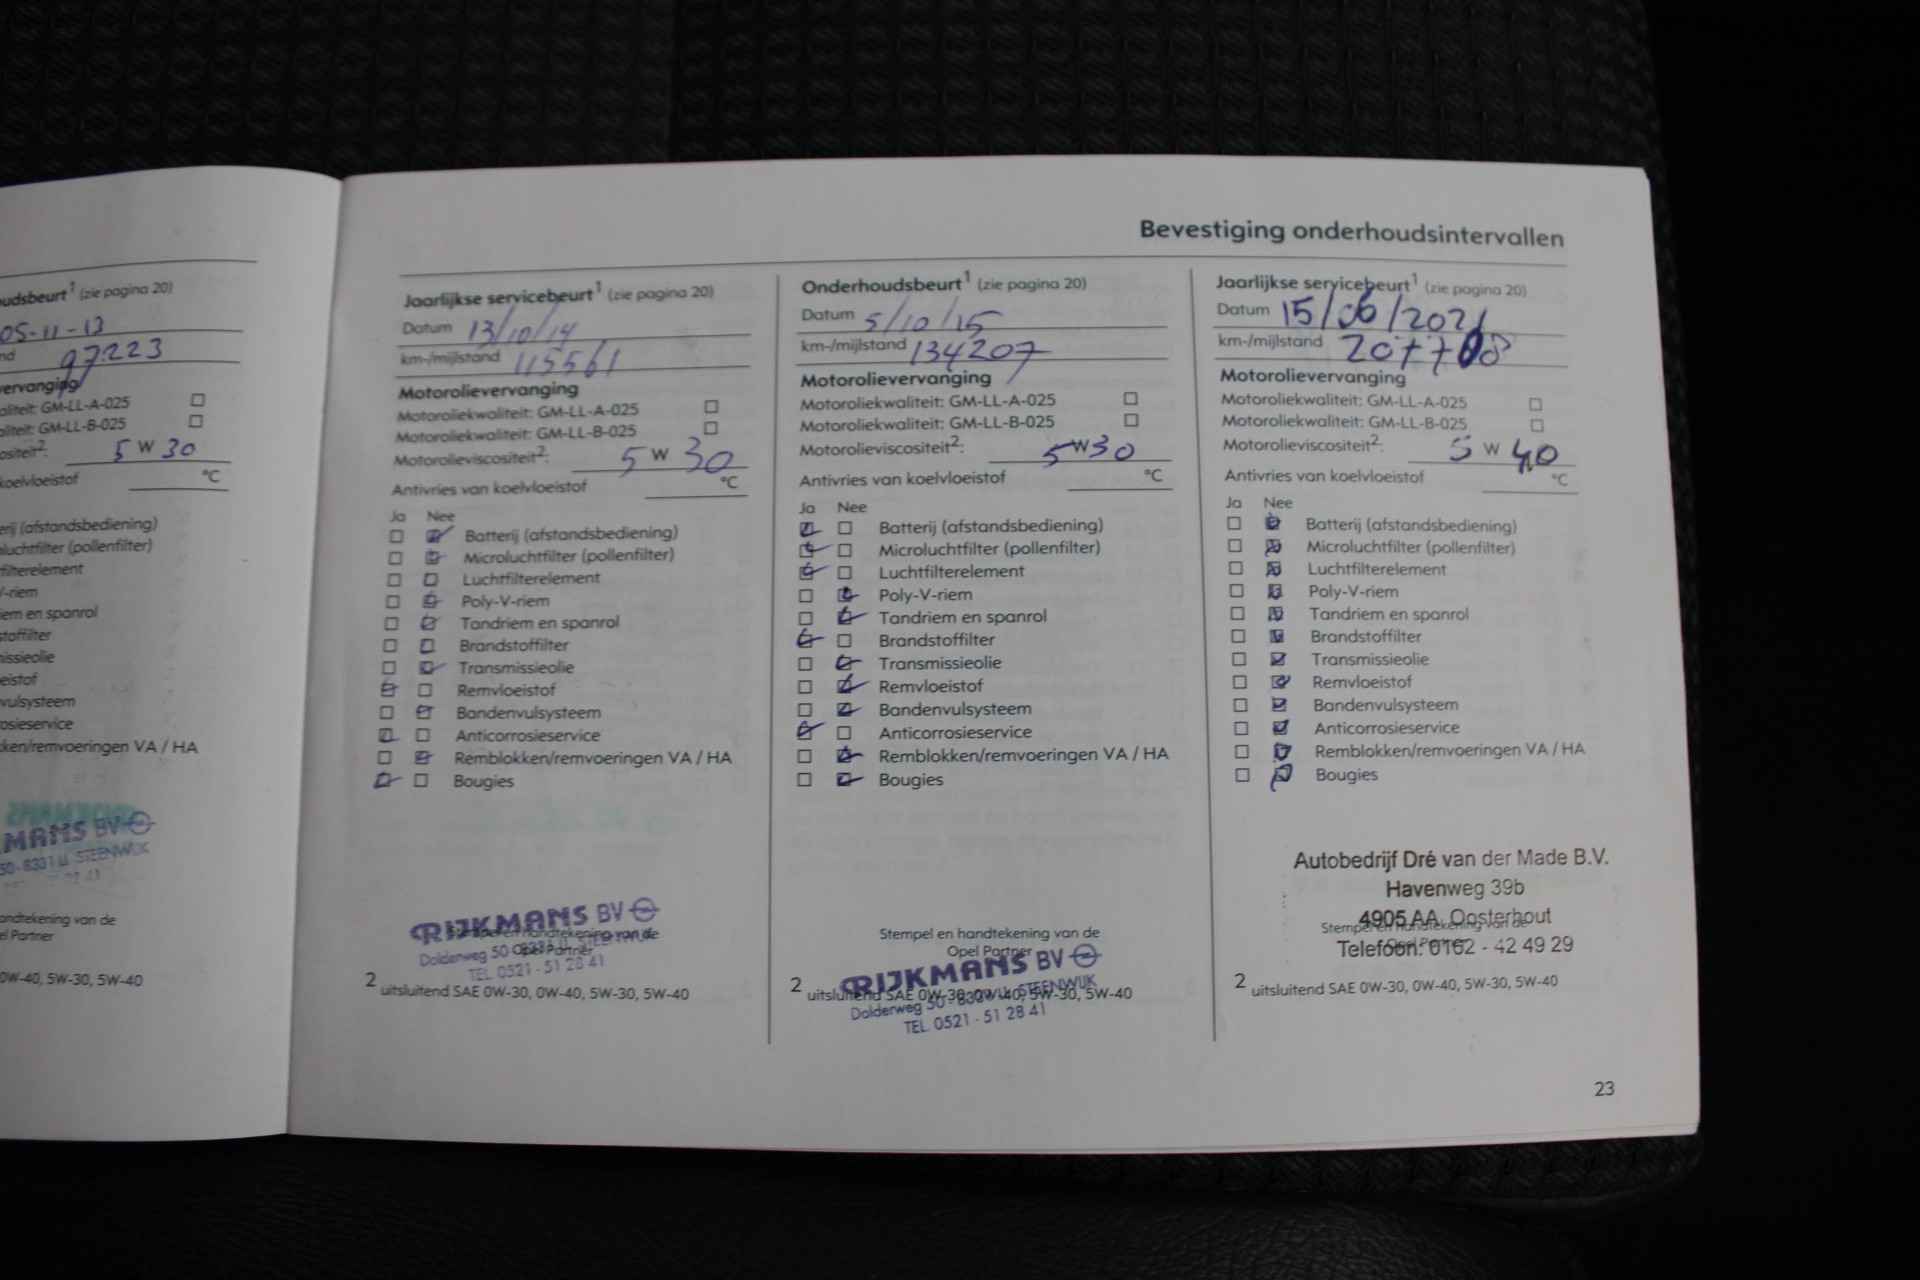 Bevestiging onderhoudsintervallen
udsbeurt1 (zie pagina 20)
05-11-13
nd 97223
ervanging
aliteit: GM-LL-A-025
aliteit: GM-LL-B-025
ositeit2: 5 W 30
koelvloeistof °C
erij (afstandsbediening)
luchtfilter (pollenfilter)
filterelement
V-riem
iem en spanrol
stoffilter
missieolie
eistof
vulsysteem
osieservice
kken/remvoeringen VA / HA
KMANS BV
50 - 8331 STEENWIJK
andtekening van de
el Partner
0W-40, 5W-30, 5W-40
Jaarlijkse servicebeurt1 (zie pagina 20)
Datum 13/10/14
km-/mijlstand 115561
Motorolievervanging
Motoroliekwaliteit: GM-LL-A-025
Motoroliekwaliteit: GM-LL-B-025
Motorolieviscositeit2: 5 W 30
Antivries van koelvloeistof °C
Ja Nee
Batterij (afstandsbediening)
Microluchtfilter (pollenfilter)
Luchtfilterelement
Poly-V-riem
Tandriem en spanrol
Brandstoffilter
Transmissieolie
Remvloeistof
Bandenvulsysteem
Anticorrosieservice
Remblokken/remvoeringen VA / HA
Bougies
RIJKMANS BV
Stempel en handtekening van de
Opel Partner
Dolderweg 50 - 8331 LL STEENWIJK
TEL. 0521 - 51 28 41
2 uitsluitend SAE 0W-30, 0W-40, 5W-30, 5W-40
Onderhoudsbeurt1 (zie pagina 20)
Datum 5/10/15
km-/mijlstand 134207
Motorolievervanging
Motoroliekwaliteit: GM-LL-A-025
Motoroliekwaliteit: GM-LL-B-025
Motorolieviscositeit2: 5 W 30
Antivries van koelvloeistof °C
Ja Nee
Batterij (afstandsbediening)
Microluchtfilter (pollenfilter)
Luchtfilterelement
Poly-V-riem
Tandriem en spanrol
Brandstoffilter
Transmissieolie
Remvloeistof
Bandenvulsysteem
Anticorrosieservice
Remblokken/remvoeringen VA / HA
Bougies
Stempel en handtekening van de
Opel Partner
RIJKMANS BV
2 uitsluitend SAE 0W-30, 0W-40, 5W-30, 5W-40
Dolderweg 50 - 8331 LL STEENWIJK
TEL. 0521 - 51 28 41
Jaarlijkse servicebeurt1 (zie pagina 20)
Datum 15/06/2021
km-/mijlstand 207708
Motorolievervanging
Motoroliekwaliteit: GM-LL-A-025
Motoroliekwaliteit: GM-LL-B-025
Motorolieviscositeit2: 5 W 40
Antivries van koelvloeistof °C
Ja Nee
Batterij (afstandsbediening)
Microluchtfilter (pollenfilter)
Luchtfilterelement
Poly-V-riem
Tandriem en spanrol
Brandstoffilter
Transmissieolie
Remvloeistof
Bandenvulsysteem
Anticorrosieservice
Remblokken/remvoeringen VA / HA
Bougies
Autobedrijf Dré van der Made B.V.
Havenweg 39b
4905 AA Oosterhout
Stempel en handtekening van de
Opel Partner
Telefoon: 0162 - 42 49 29
2 uitsluitend SAE 0W-30, 0W-40, 5W-30, 5W-40
23